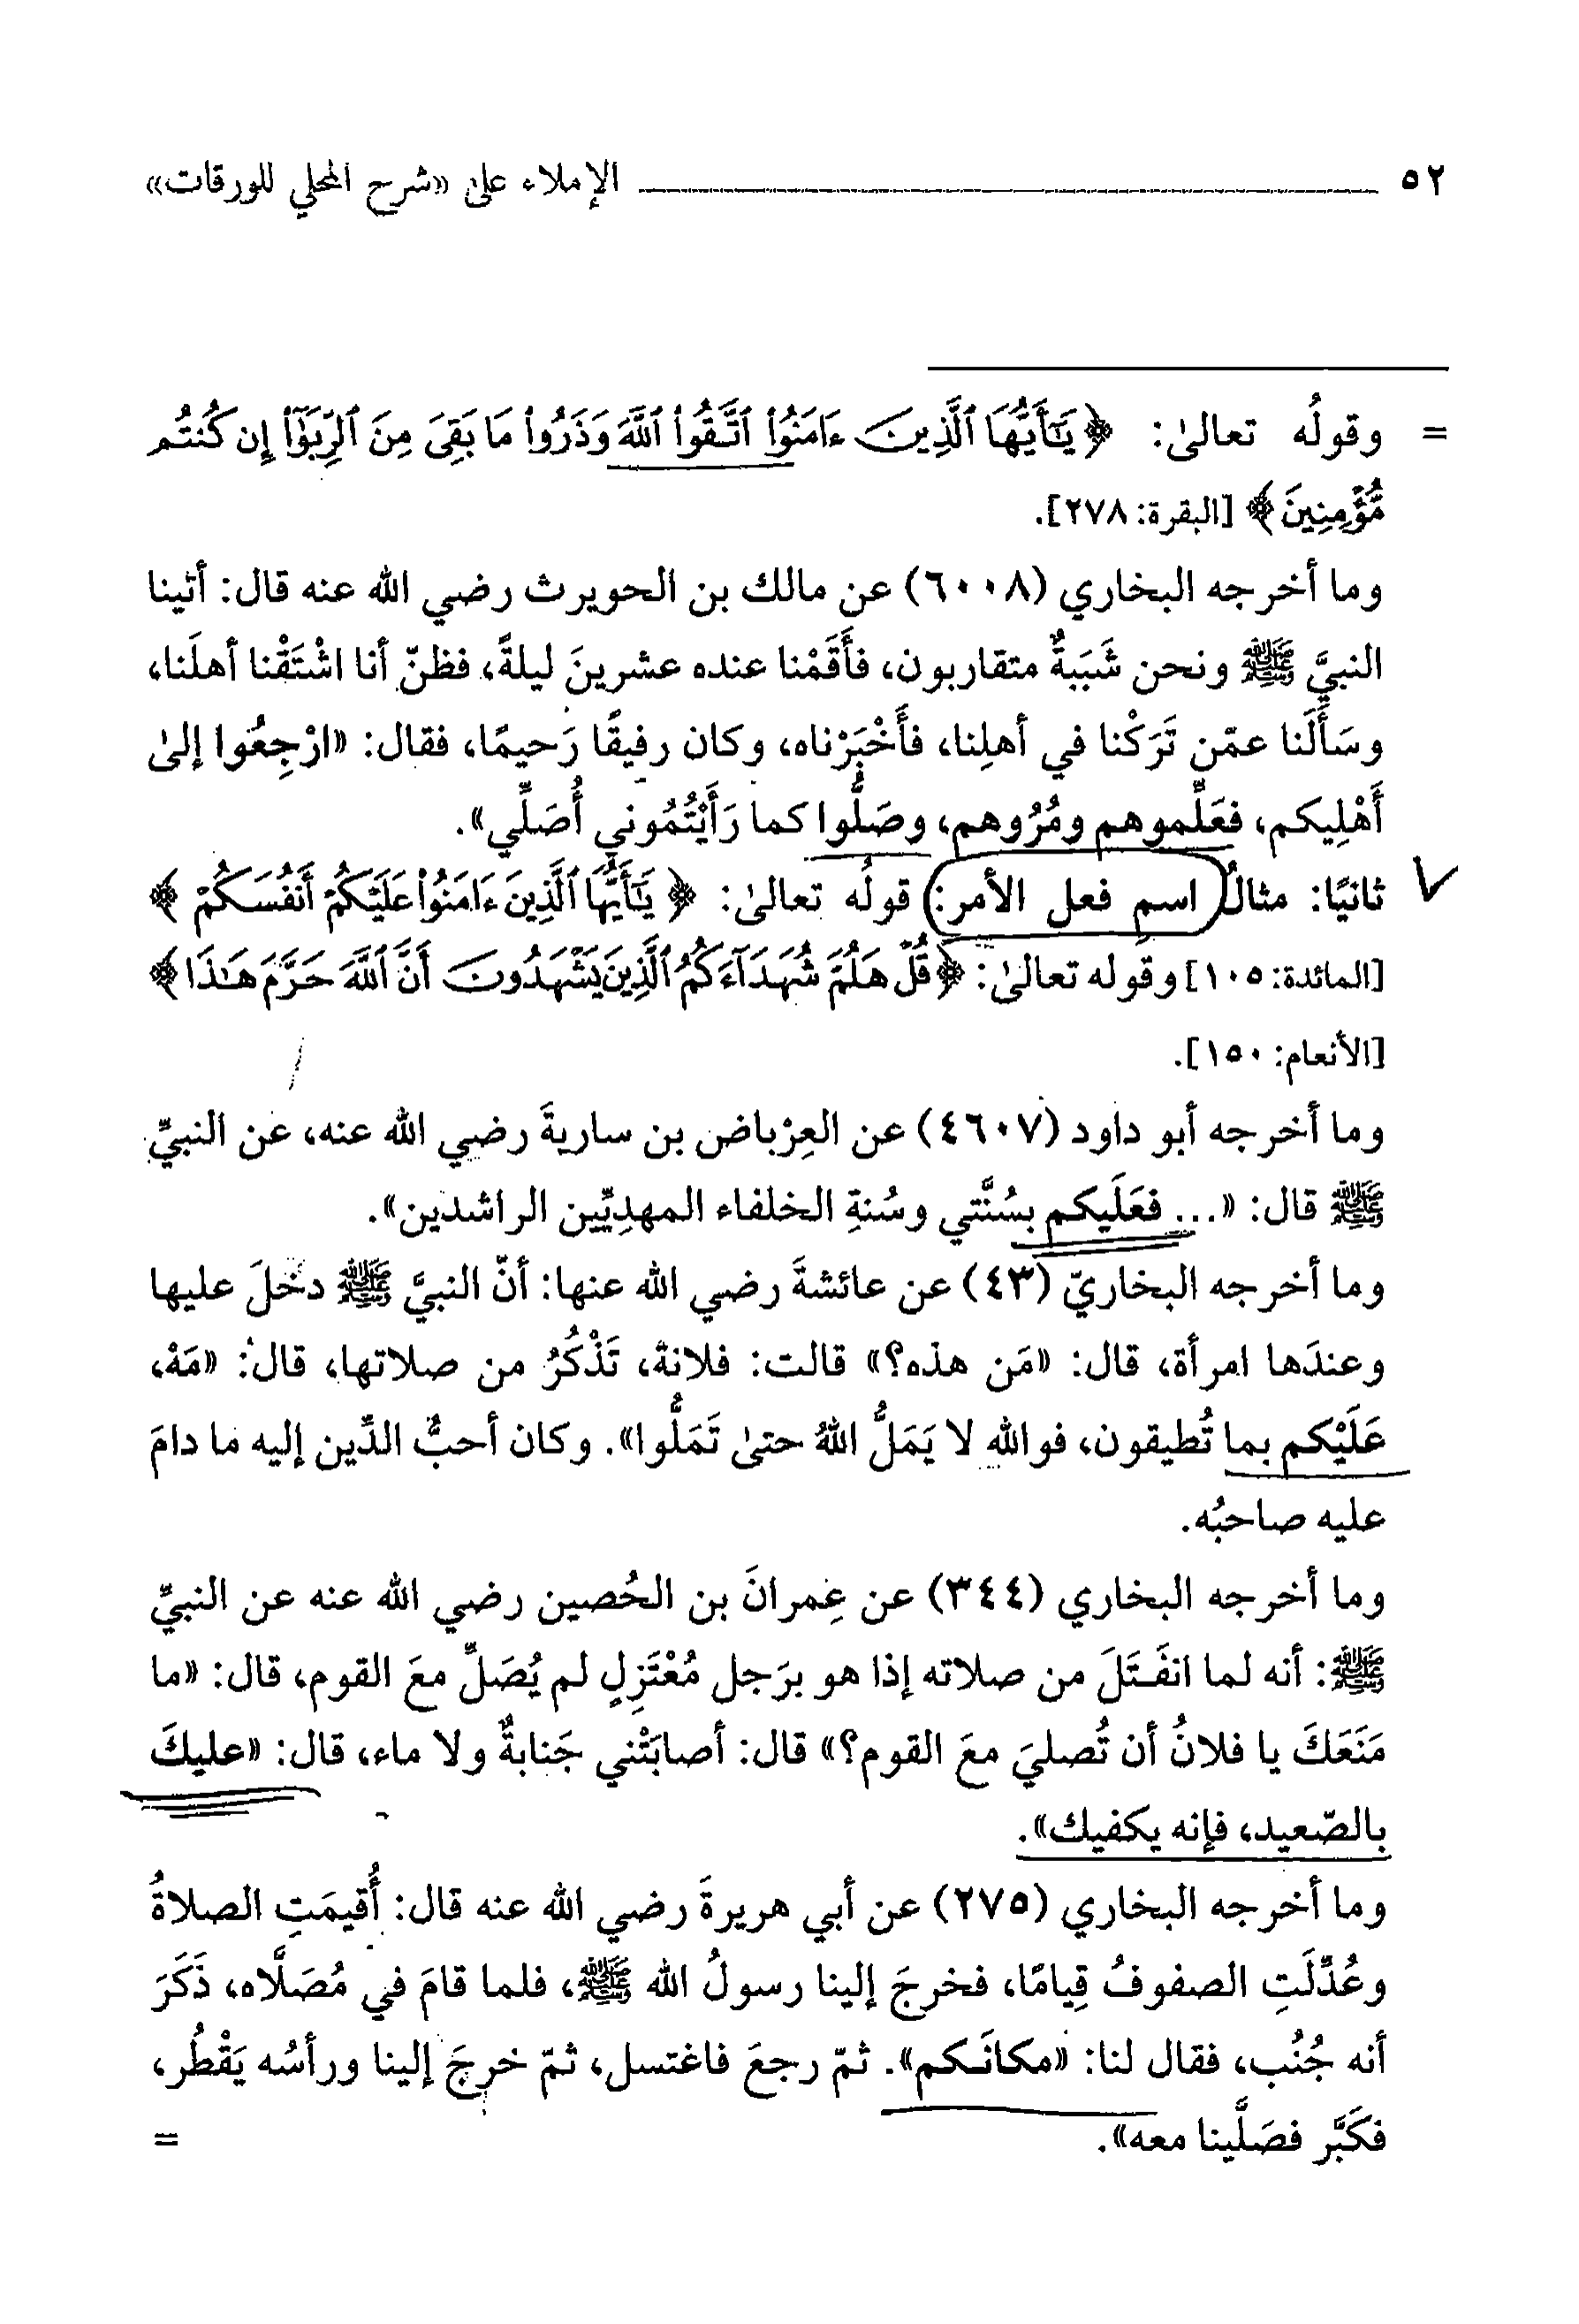 ٥٢ الإملاء على «شرح المحلي للورقات»
= وقولُه تعالىٰ: ﴿يَٰٓأَيُّهَا ٱلَّذِينَ ءَامَنُوا۟ ٱتَّقُوا۟ ٱللَّهَ وَذَرُوا۟ مَا بَقِىَ مِنَ ٱلرِّبَوٰٓا۟ إِن كُنتُم
مُّؤْمِنِينَ﴾ [البقرة: ٢٧٨].
وما أخرجه البخاري (٦٠٠٨) عن مالك بن الحويرث رضي الله عنه قال: أتينا
النبيَّ ﷺ ونحن شَبَبَةٌ متقاربون، فأَقَمْنا عنده عشرينَ ليلةً، فظنّ أنا اشْتَقْنا أهلَنا،
وسَأَلَنا عمّن تَرَكْنا في أهلِنا، فأَخْبَرْناه، وكان رفيقًا رَحيمًا، فقال: «ارْجِعُوا إلىٰ
أَهْلِيكم، فعَلِّموهم ومُرُوهم، وصَلُّوا كما رَأَيْتُمُوني أُصَلِّي».
ثانيًا: مثالُ اسمِ فعل الأمر: قولُه تعالىٰ: ﴿يَٰٓأَيُّهَا ٱلَّذِينَ ءَامَنُوا۟ عَلَيْكُمْ أَنفُسَكُمْ﴾
[المائدة: ١٠٥] وقوله تعالىٰ: ﴿قُلْ هَلُمَّ شُهَدَآءَكُمُ ٱلَّذِينَ يَشْهَدُونَ أَنَّ ٱللَّهَ حَرَّمَ هَٰذَا﴾
[الأنعام: ١٥٠].
وما أخرجه أبو داود (٤٦٠٧) عن العِرْباض بن ساريةَ رضي الله عنه، عن النبيِّ
ﷺ قال: «... فعَلَيكم بسُنَّتي وسُنةِ الخلفاء المهدِيِّين الراشدين».
وما أخرجه البخاريّ (٤٣) عن عائشةَ رضي الله عنها: أنّ النبيَّ ﷺ دخلَ عليها
وعندَها امرأة، قال: «مَن هذه؟» قالت: فلانة، تَذْكُرُ من صلاتها، قال: «مَهْ،
عَلَيْكم بما تُطيقون، فوالله لا يَمَلُّ اللهُ حتىٰ تَمَلُّوا». وكان أحبُّ الدِّين إليه ما دامَ
عليه صاحبُه.
وما أخرجه البخاري (٣٤٤) عن عِمرانَ بن الحُصين رضي الله عنه عن النبيِّ
ﷺ: أنه لما انفَتَلَ من صلاته إذا هو برَجل مُعْتَزِلٍ لم يُصَلِّ معَ القوم، قال: «ما
مَنَعَكَ يا فلانُ أن تُصليَ معَ القوم؟» قال: أصابَتْني جَنابةٌ ولا ماء، قال: «عليكَ
بالصّعيد، فإنه يكفيك».
وما أخرجه البخاري (٢٧٥) عن أبي هريرةَ رضي الله عنه قال: أُقيمَتِ الصلاةُ
وعُدِّلَتِ الصفوفُ قِيامًا، فخرجَ إلينا رسولُ الله ﷺ، فلما قامَ في مُصَلَّاه، ذَكَرَ
أنه جُنُب، فقال لنا: «مكانَكم». ثمّ رجعَ فاغتسل، ثمّ خرجَ إلينا ورأسُه يَقْطُر،
فكَبَّر فصَلَّينا معه». =